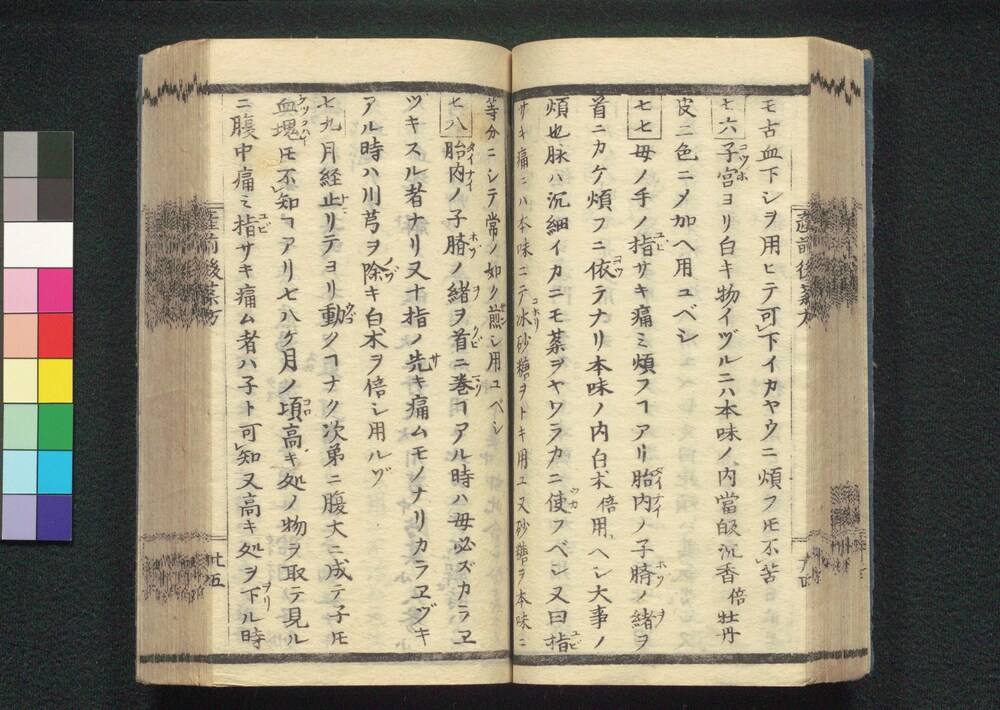 モ古血下シヲ用ヒテ可下イカヤウニ煩フ𪜈不苦
七六 子宮ヨリ白キ物イヅルニハ本味ノ内當皈沉香倍牡丹
皮二色ニメ加ヘ用ユベシ
七七 母ノ手ノ指サキ痛ミ煩フヿアリ胎内ノ子臍ノ緒ヲ
首ニカケ煩フニ依テナリ本味ノ内白朮倍用ヘシ大事ノ
煩也脉ハ沉細イカニモ藥ヲヤワラカニ使フベシ又曰指
サキ痛ニハ本味ニテ氷砂糖ヲトキ用ユ又砂糖ヲ本味ニ
等分ニシテ常ノ如ク煎シ用ユベシ
七八 胎内ノ子臍ノ緒ヲ首ニ巻ヿアル時ハ母必ズカラヱ
ツキスル者ナリ又十指ノ先キ痛ムモノナリカラヱヅキ
アル時ハ川芎ヲ除キ白朮ヲ倍シ用ルゾ
七九 月経止リテヨリ動クヿナク次第ニ腹大ニ成テ子𪜈
血塊𪜈不知ヿアリ七八ケ月ノ頃高キ処ノ物ヲ取テ見ル
ニ腹中痛ミ指サキ痛ム者ハ子ト可知又高キ処ヲ下ル時
産前後藥方
廿五